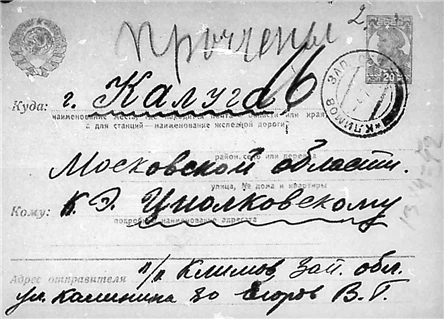 Прочтены
20
КЛИМОВ ЗАП
Куда: г. Калуга 6
наименование места, где находится почта, области или края
а для станций—наименование железной дороги
Московской области.
район, село или деревня
улица, № дома и квартиры
Кому: К. Э. Циолковскому
подробное наименование адресата
Адрес отправителя п/о Климов, Зап. обл.
ул. Калинина 30 Егоров В. Г.